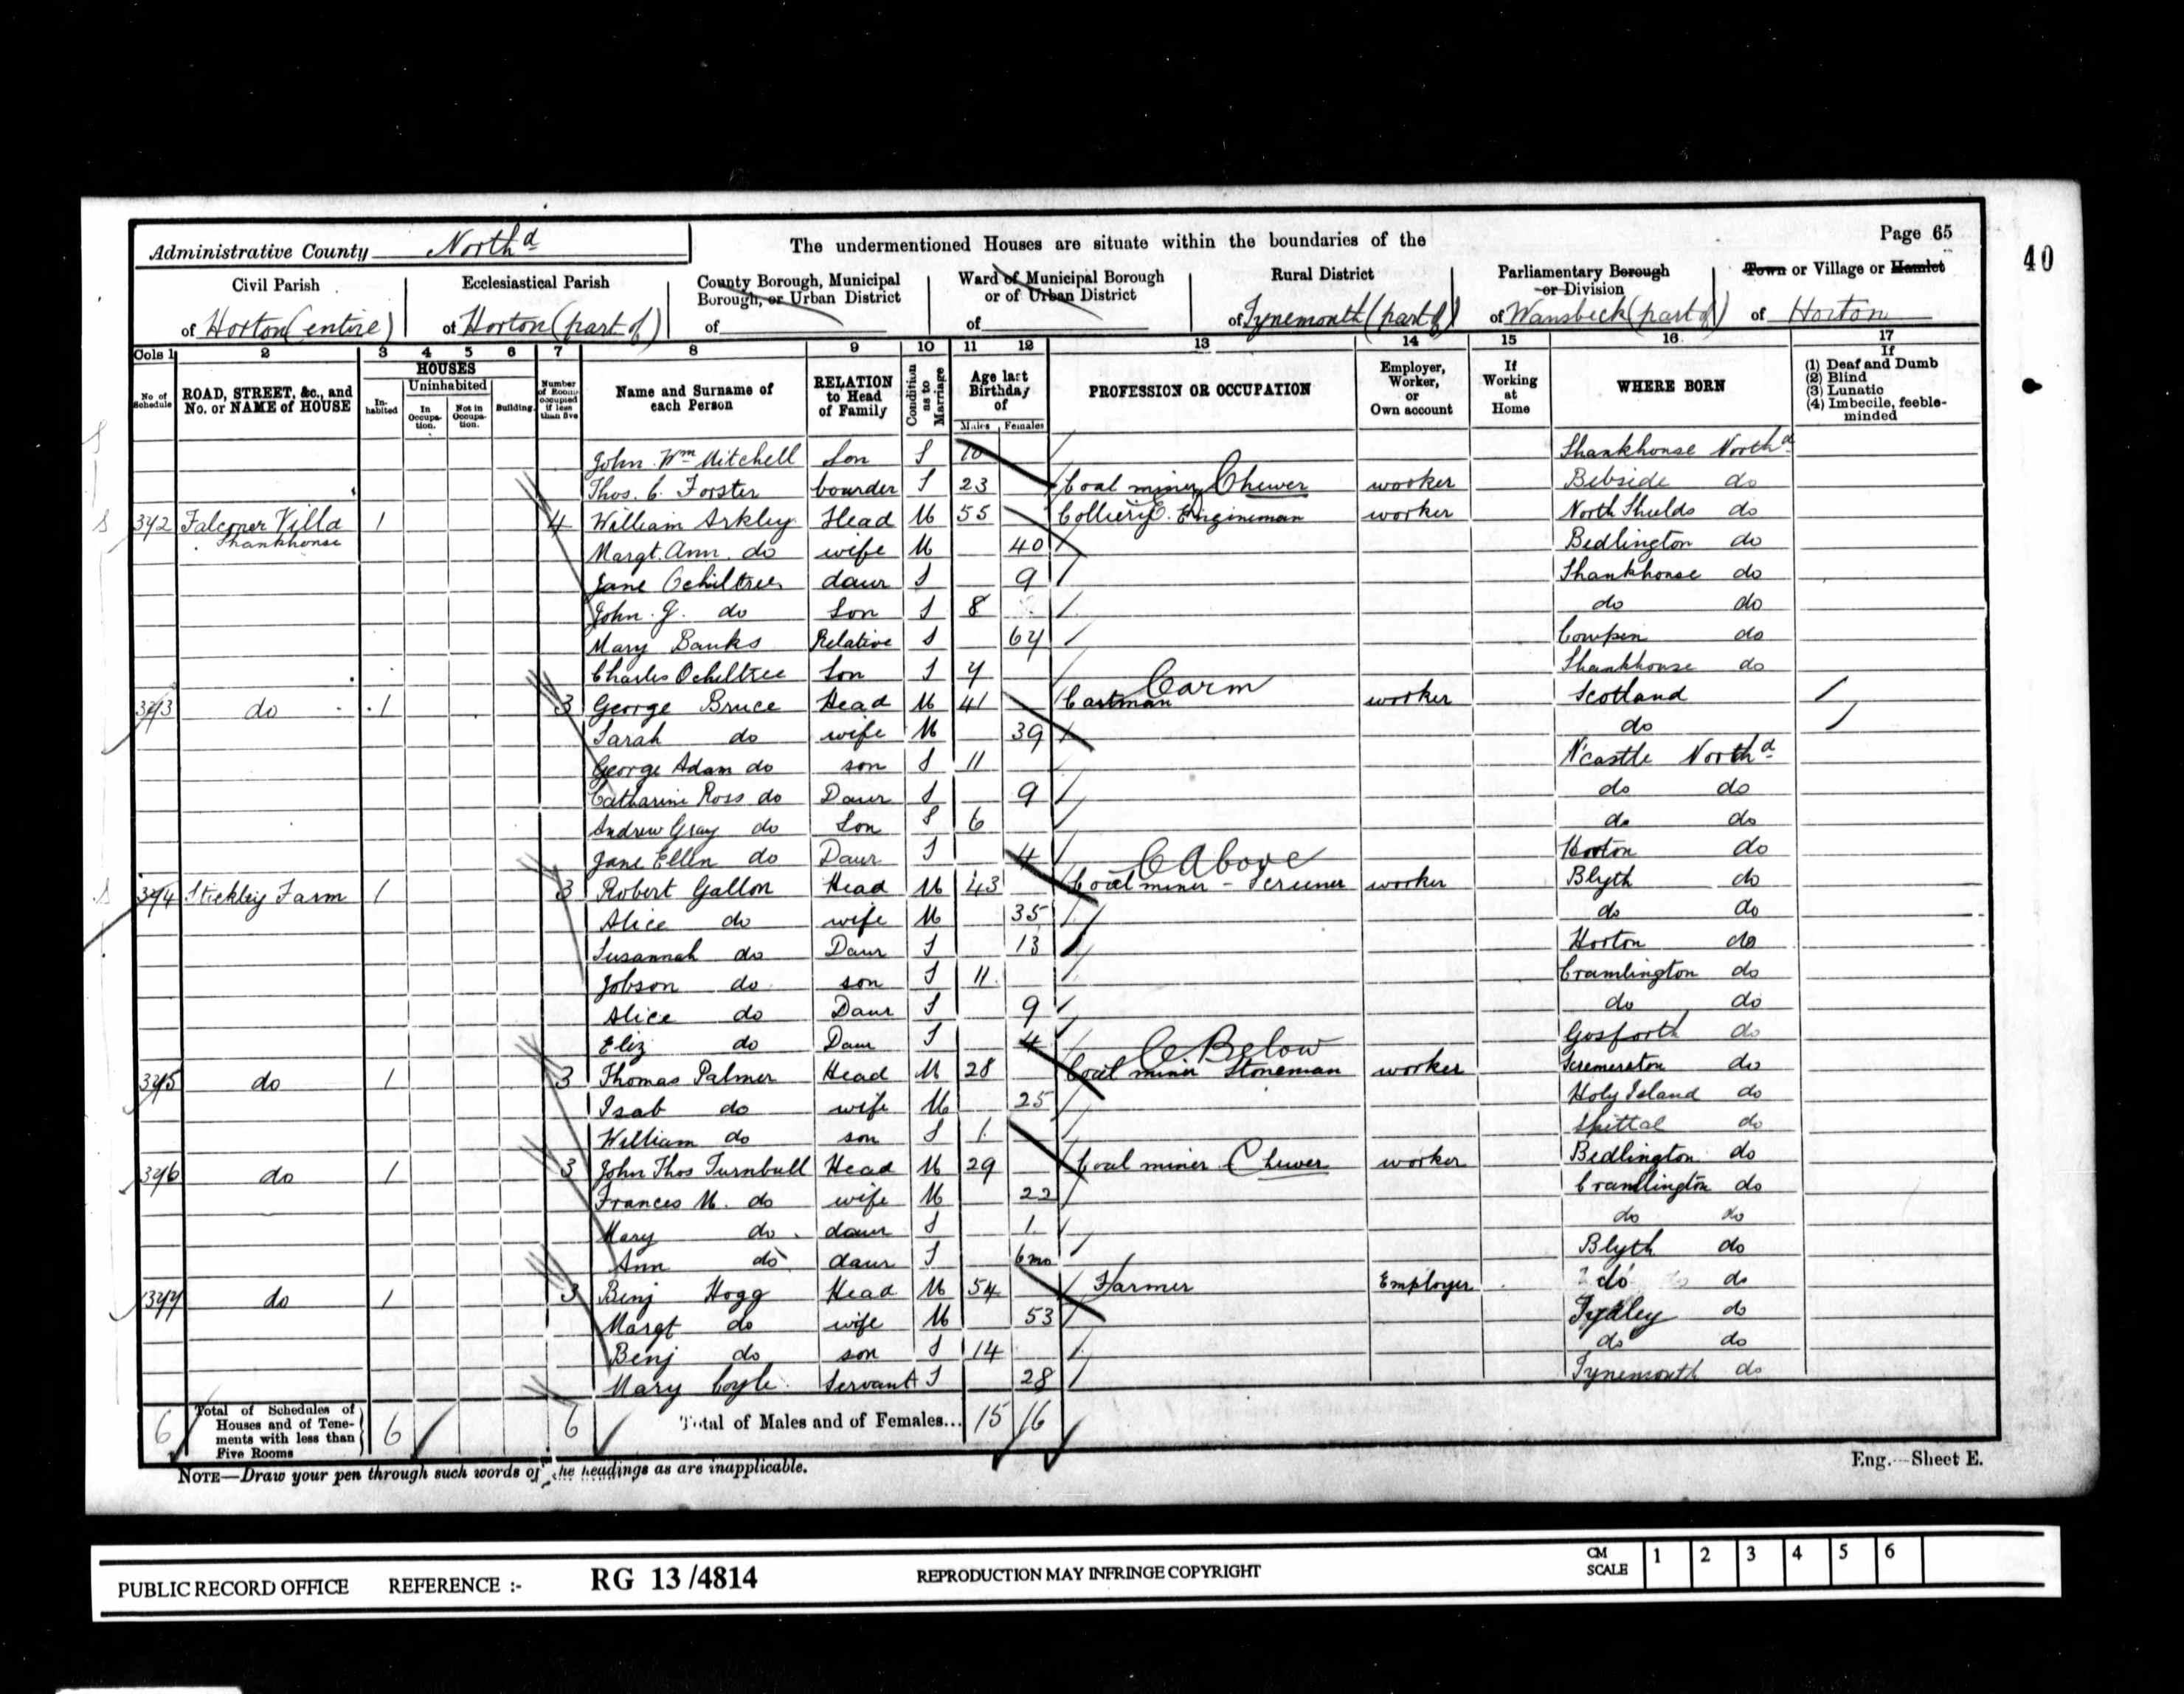 Page 65
40
Administrative County North^d
The undermentioned Houses are situate within the boundaries of the
Civil Parish
of Horton (entire)
Ecclesiastical Parish
of Horton (part of)
County Borough, Municipal
Borough, or Urban District
of
Ward of Municipal Borough
or of Urban District
of
Rural District
of Tynemouth (part of)
Parliamentary Borough
or Division
of Wansbeck (part of)
Town or Village or Hamlet
of Horton
Cols 1 2 3 4 5 6 7 8 9 10 11 12 13 14 15 16 17
No of Schedule
ROAD, STREET, &c., and No. or NAME of HOUSE
HOUSES
In-habited
Uninhabited
In Occupa-tion.
Not in Occupa-tion.
Building.
Number of Rooms occupied if less than five
Name and Surname of each Person
RELATION to Head of Family
Condition as to Marriage
Age last Birthday of
Males Females
PROFESSION OR OCCUPATION
Employer, Worker, or Own account
If Working at Home
WHERE BORN
If
(1) Deaf and Dumb
(2) Blind
(3) Lunatic
(4) Imbecile, feeble-minded
John Wm Mitchell Son S 10 Shankhouse North^d
Thos. C. Forster boarder S 23 Coal miner Hewer worker Bebside do
372 Falconer Villa Shankhouse 1 4 William Arkley Head M 55 Colliery Engineman worker North Shields do
Margt. Ann do wife M 40 Bedlington do
Jane Ochiltree daur S 9 Shankhouse do
John G. do Son S 8 do do
Mary Banks Relative S 67 Cowpen do
Charles Ochiltree Son S 7 Shankhouse do
373 do 1 3 George Bruce Head M 41 Cartman Carm worker Scotland
Sarah do wife M 39 do
George Adam do son S 11 N'castle North^d
Catharine Ross do Daur S 9 do do
Andrew Gray do Son S 6 do do
Jane Ellen do Daur S 4 Horton do
374 Stickley Farm 1 3 Robert Gallon Head M 43 C Above Coal miner - Screener worker Blyth do
Alice do wife M 35 do do
Susannah do Daur S 13 Horton do
Jobson do son S 11 Cramlington do
Alice do Daur S 9 do do
Eliz do Daur S 4 Gosforth do
375 do 1 3 Thomas Palmer Head M 28 C Below Coal miner Stoneman worker Scremerston do
Isab do wife M 25 Holy Island do
William do son S 1 Spittal do
376 do 1 3 John Thos Turnbull Head M 29 Coal miner Hewer worker Bedlington do
Frances M. do wife M 22 Cramlington do
Mary do daur S 1 do do
Ann do daur S 6 mo Blyth do
377 do 1 3 Benj Hogg Head M 54 Farmer Employer do do
Margt do wife M 53 do
Benj do son S 14 do do
Mary Coyle Servant S 28 Tynemouth do
6 Total of Schedules of Houses and of Tene-ments with less than Five Rooms 6 6 Total of Males and of Females... 15 16
NOTE—Draw your pen through such words of the headings as are inapplicable.
Eng.—Sheet E.
PUBLIC RECORD OFFICE REFERENCE :- RG 13/4814 REPRODUCTION MAY INFRINGE COPYRIGHT CM SCALE 1 2 3 4 5 6